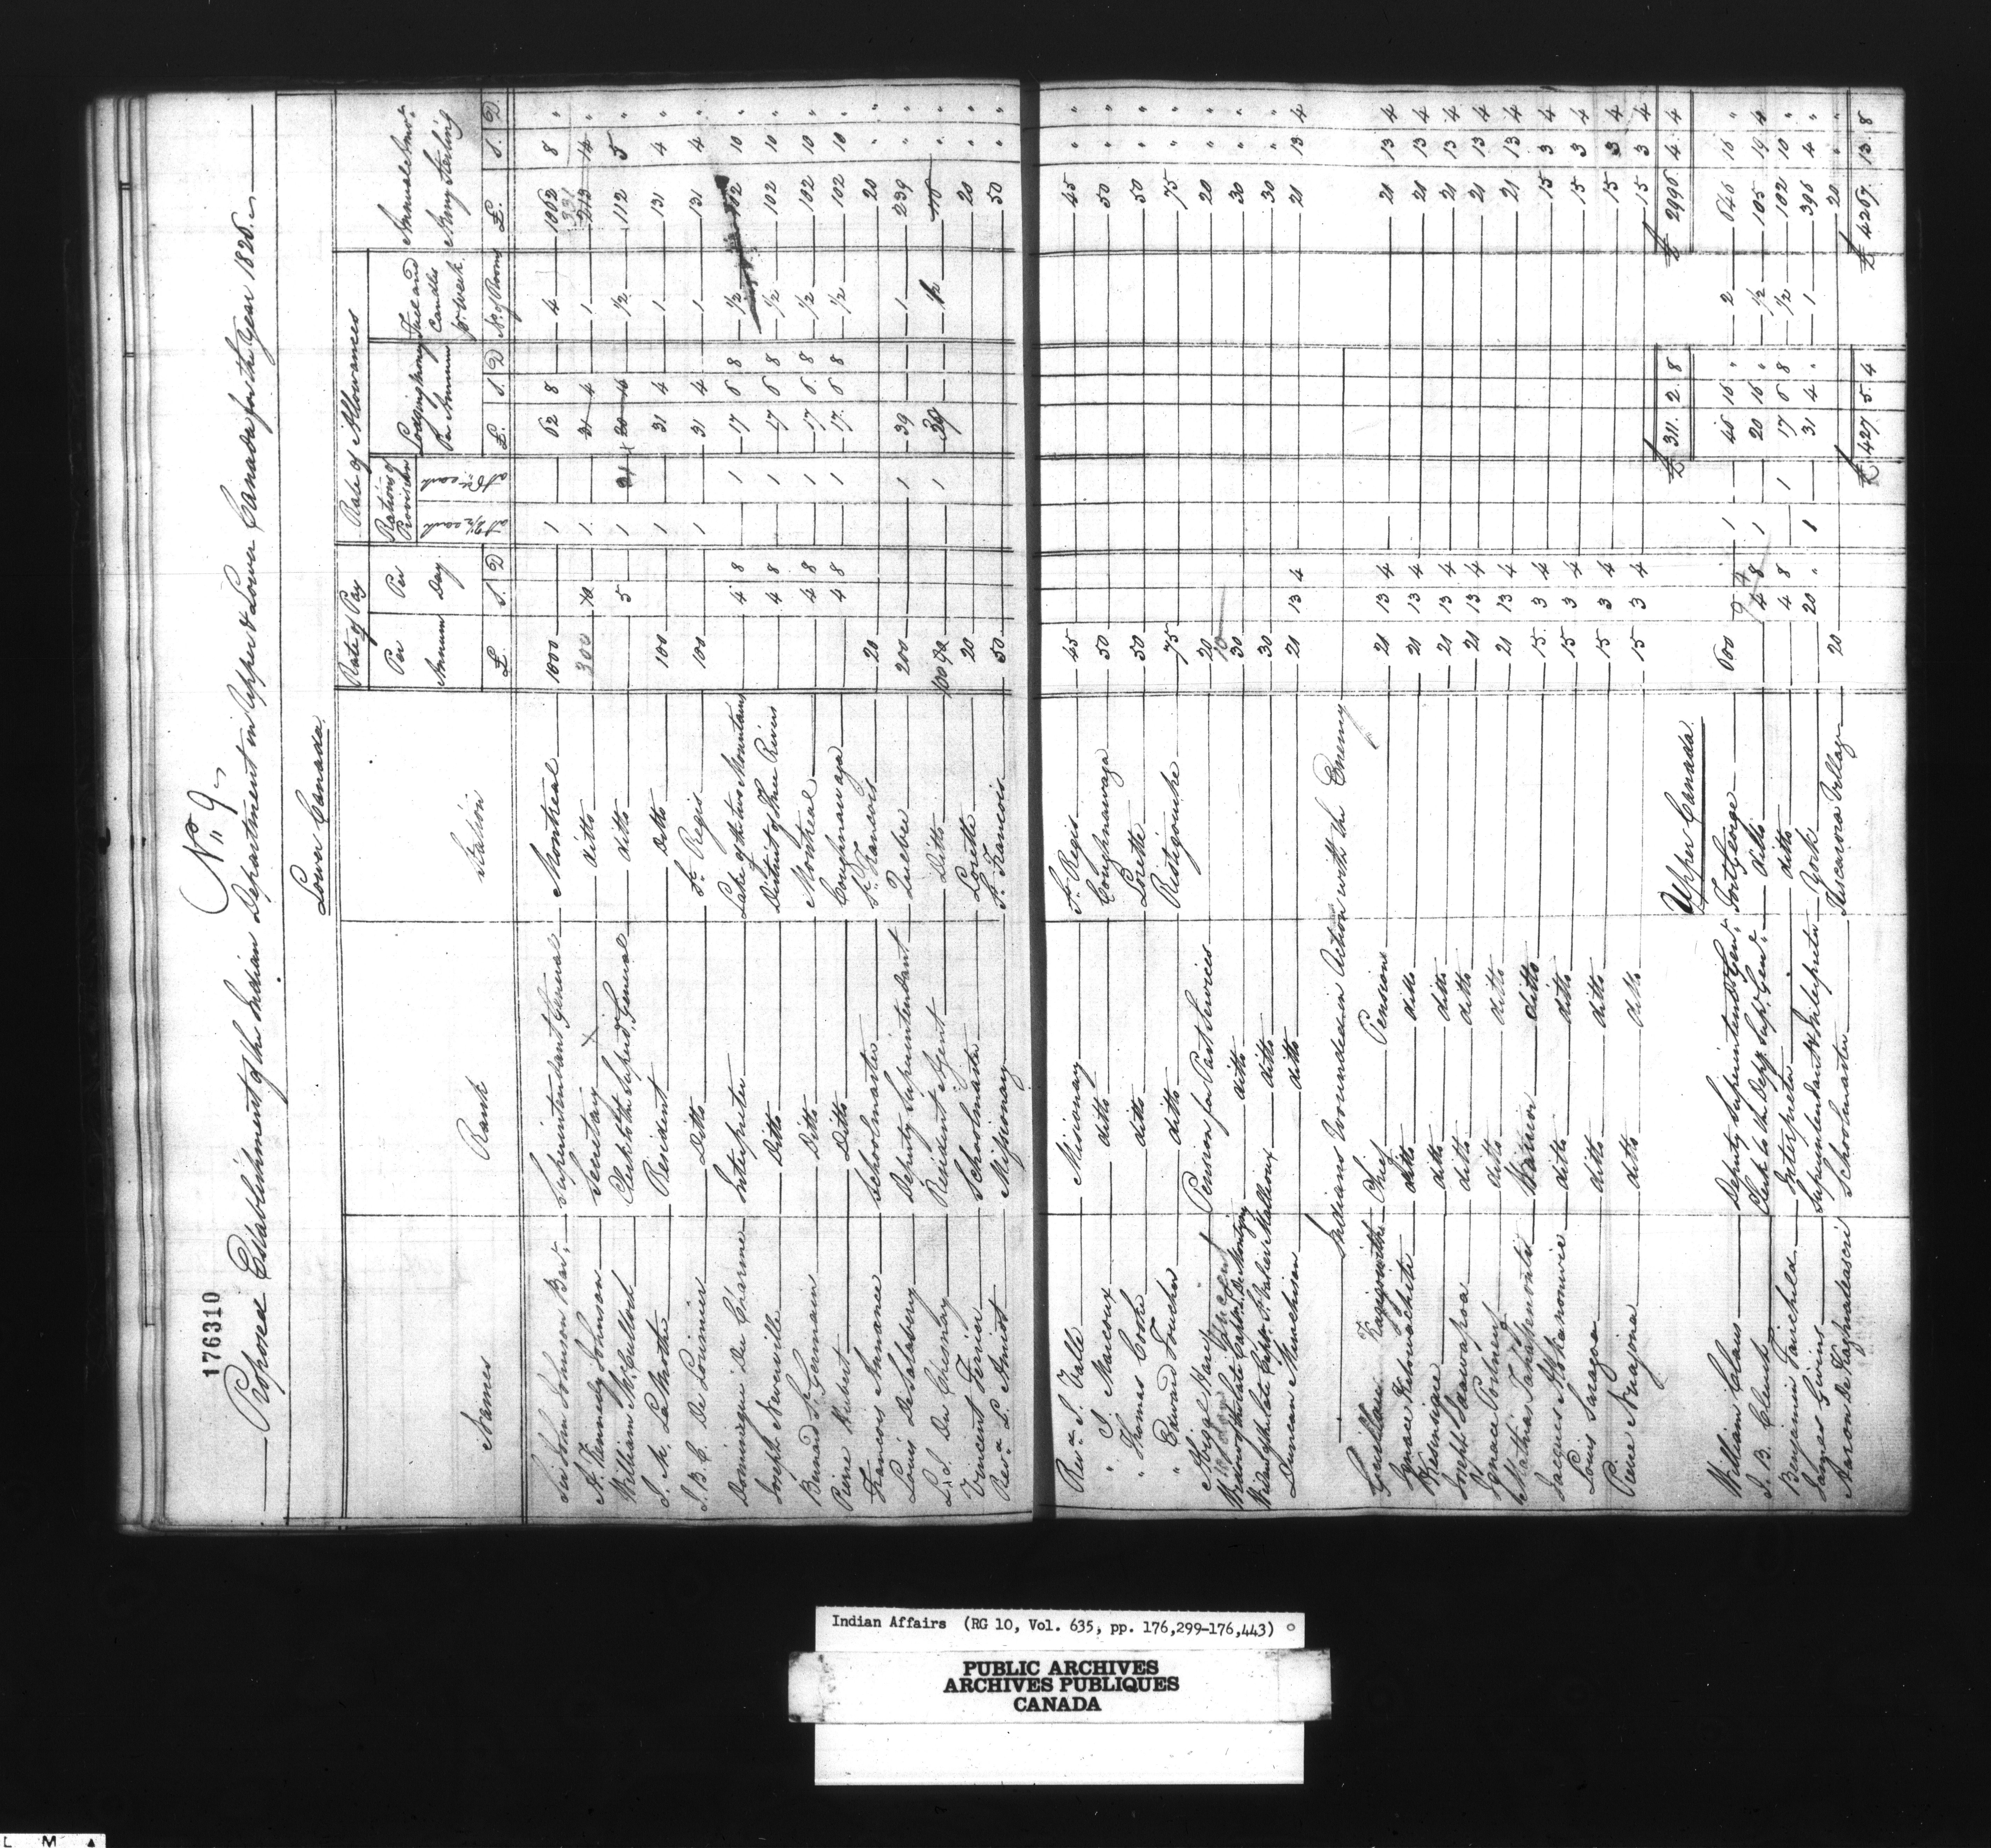 176310
No. 9
Proposed Establishment of the Indian Department in Upper & Lower Canada for the Year 1826.
Lower Canada
Names Rank Station Rate of Pay Rate of Allowances Annual Amot. Army Sterling
Per Annum Per Day Rations of Provision Lodging Money Per Annum Fuel and Candles pr. Week
£. S. D at 2/2 each at each £. S. D No. of Rooms £. S. D.
Sir John Johnson Bart. Superintendant General Montreal 1000 1 62 8 4 1062 8 "
A. Kennedy Johnson Secretary ditto 300 10 1 31 4 1 331 213 14 "
William McCulloch Clerk to the Superd. General ditto 5 1 20 16 1/2 112 5 "
J. M. La Mothe Resident Ditto 100 1 31 4 1 131 4 "
J. B. C. De Lorimier Ditto St. Regis 100 1 31 4 1 131 4 "
Dominique Du Charme Interpreter Lake of the two Mountains 4 8 1 17 6 8 1/2 102 10 "
Joseph Neverville Ditto District of Three Rivers 4 8 1 17 6 8 1/2 102 10 "
Bernard St. Germain Ditto Montreal 4 8 1 17 6 8 1/2 102 10 "
Pierre Hubert Ditto Coughnawaga 4 8 1 17 6 8 1/2 102 10 "
Francois Annance Schoolmaster St. Francois 20 20 " "
Louis De Salaberry Deputy Superintendant Quebec 200 1 39 1 239 " "
L. J. Du Chesnay Resident Agent Ditto 100 1 39 1/2
Vincent Ferrier Schoolmaster Lorette 20 20 " "
Revd. L. Amiot Missionary St. Francois 50 50 " "
Revd. J. Vallé Missionary St. Regis 45 45 " "
" J. Marcoux ditto Coughnawaga 50 50 " "
" Thomas Cooke ditto Lorette 50 50 " "
" Edward Faucher ditto Ristigouche 75 75 " "
Abigal Ward Pension for Past Services 20 20 " "
Widow of the late Captn. De Montigny ditto 30 30 " "
Widow of the late Captn. St. Valier Mailloux ditto 30 30 " "
Duncan Murchison ditto 21 13 4 21 13 4
Indians Wounded in Action with the Enemy
Chief Pensions 21 13 4 21 13 4
Ignace ditto ditto 21 13 4 21 13 4
ditto ditto 21 13 4 21 13 4
Joseph ditto ditto 21 13 4 21 13 4
Ignace Portneuf ditto ditto 21 13 4 21 13 4
Mathias Warrior ditto 15 3 4 15 3 4
Jacques ditto ditto 15 3 4 15 3 4
Louis Saragoa ditto ditto 15 3 4 15 3 4
Pierre ditto ditto 15 3 4 15 3 4
£ 311. 2. 8 £ 2996 4. 4
Upper Canada
William Claus Deputy Superintend. Genl. Fort George 600 1 45 16 " 2 646 16 "
J. B. Clench Clerk to the Depy. Sup. Genl. ditto 4 8 1 20 16 " 1/2 105 19 4
Benjamin Fairchild Interpreter ditto 4 8 1 17 6 8 1/2 102 10 "
James Givins Superintendant & Interpreter York 20 " 1 31 4 " 1 396 4 "
Aaron De Schoolmaster Tuscarora Village 20 20 " "
£ 427 5. 4 £ 4267. 13. 8
Indian Affairs (RG 10, Vol. 635, pp. 176,299-176,443)
PUBLIC ARCHIVES
ARCHIVES PUBLIQUES
CANADA
L M